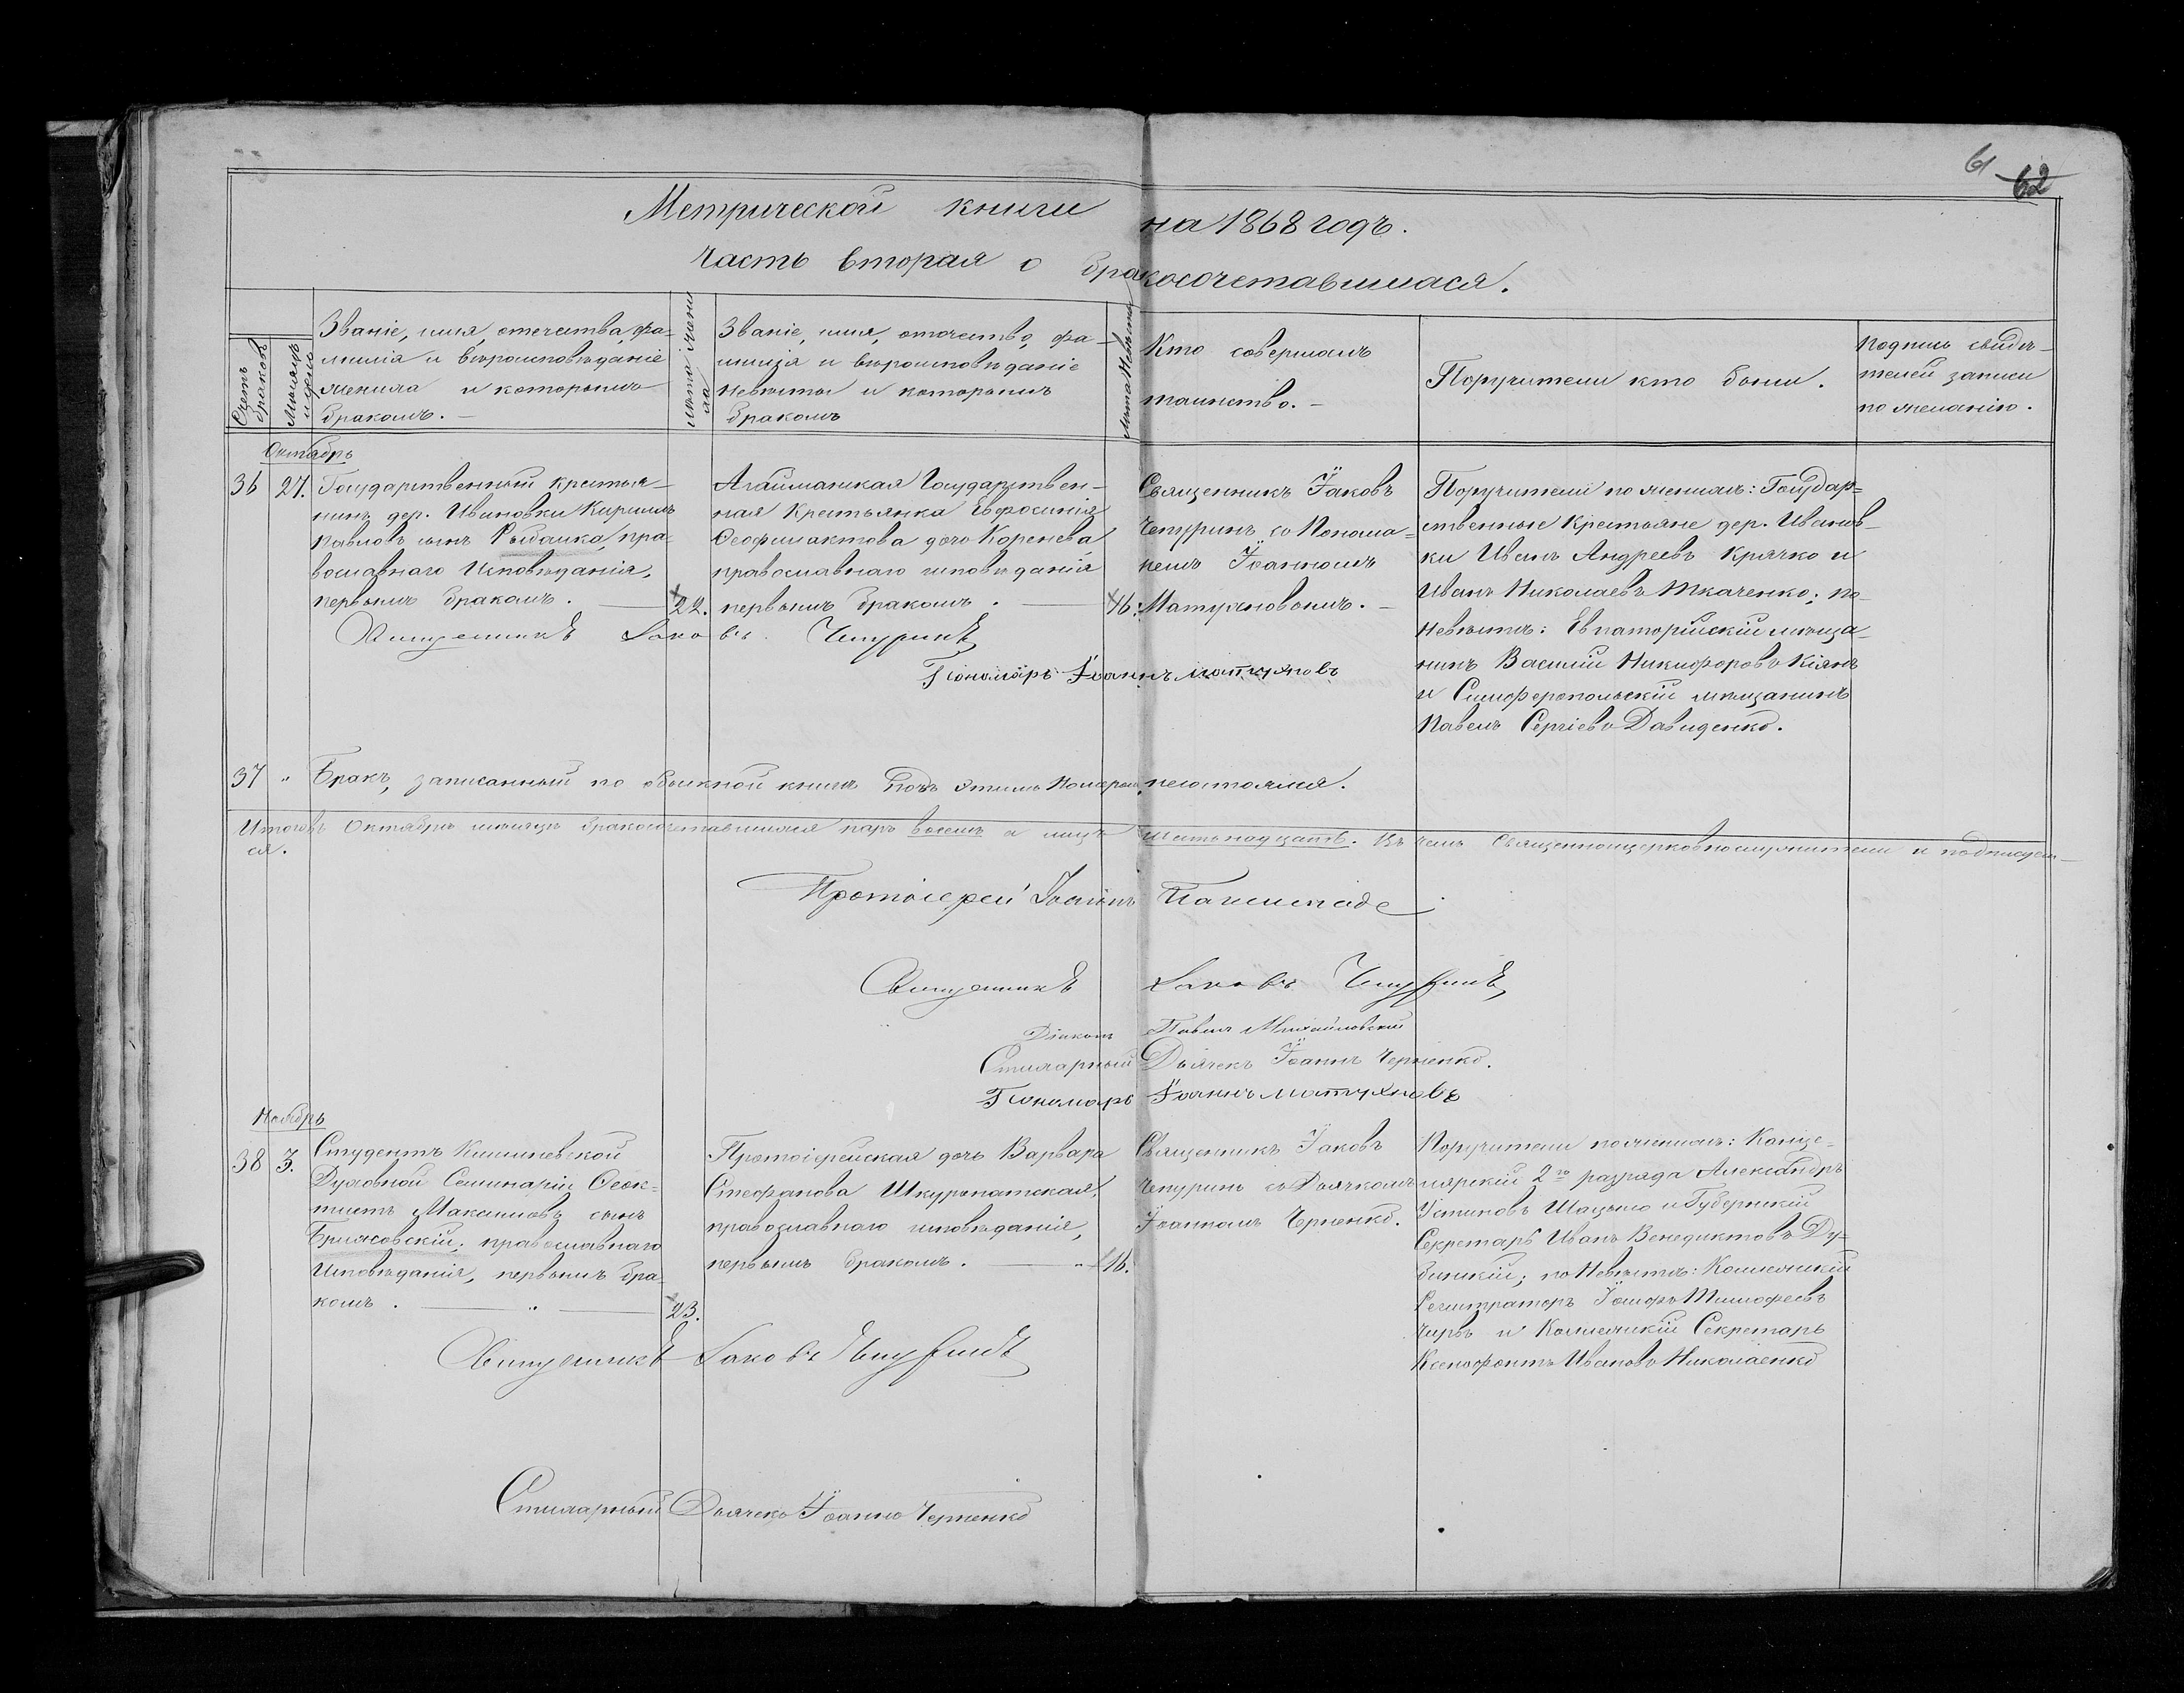 61 62
Метрической книги на 1868 годъ.
часть вторая о бракосочетавшихся.
Счетъ браковъ
Мѣсяцъ и день
Званіе, имя, отчество, фа-
милія и вѣроисповѣданіе
жениха и которымъ
бракомъ. –
Лѣта жени
ха
Званіе, имя, отчество, фа-
милія и вѣроисповѣданіе
Невѣсты и которымъ
бракомъ
Лѣта Невѣсты
Кто совершалъ
таинство. –
Поручители кто были.
Подпись свидѣ-
телей записи
по желанію.
Октябрь
36
27.
Государственный крестья-
нинъ дер. Ивановки Кириллъ
Павловъ сынъ Рыбалка, пра-
вославнаго Исповѣданія,
первымъ бракомъ.
22.
Агайманская Государствен-
ная Крестьянка Ефросинія
Феофилактова дочь Коренева
православнаго исповѣданія
первымъ бракомъ.
16.
Священникъ Іаковъ
Чепуринъ съ Понома-
ремъ Іоанномъ
Матуяновымъ. –
Поручители по женихѣ: Государ=
ственные Крестьяне дер. Иванов-
ки Иванъ Андреевъ Крячко и
Иванъ Николаевъ Ткаченко; по
Невѣстѣ: Евпаторійскій мѣща-
нинъ Василій Никифоровъ Кіянъ
и Симферопольскій мѣщанинъ
Павелъ Сергіевъ Давиденко.
Священникъ Іаковъ Чепуринъ
Пономарь Іоаннъ Матуяновъ
37 " Бракъ, записанный по обыскной книгѣ подъ этимъ Номеромъ, несостоялся.
Итого въ Октябрѣ мѣсяцѣ бракосочетавшихся паръ восемь а лицъ шестьнадцать. Въ чемъ Священноцерковнослужители и подписуем-
ся.
Протоіерей Іоаннъ
Священникъ Іаковъ Чепуринъ
Діаконъ Павелъ Михайловскій
Стихарный Дьячекъ Іоаннъ Черненко.
Пономарь Іоаннъ Матуяновъ
Ноябрь
38
3.
Студентъ Кишиневской
Духовной Семинаріи Феок=
тистъ Максимовъ сынъ
православнаго
Исповѣданія, первымъ бра-
комъ.
23.
Протоіерейская дочь Варвара
Стефанова Шкуропатская,
православнаго исповѣданія,
первымъ бракомъ.
16.
Священникъ Іаковъ
Чепуринъ съ Дьячкомъ
Іоанномъ Черненко.
Поручители по женихѣ: Канце-
лярскій 2го разряда Александръ
Устиновъ и Губернскій
Секретарь Иванъ Венедиктовъ Ду-
бинскій; по Невѣстѣ: Коллежскій
Регистраторъ Іосифъ Тимофеевъ
и Коллежскій Секретарь
Ксенофонтъ Ивановъ Николаенко
Священникъ Іаковъ Чепуринъ
Стихарный Дьячекъ Іоаннъ Черненко